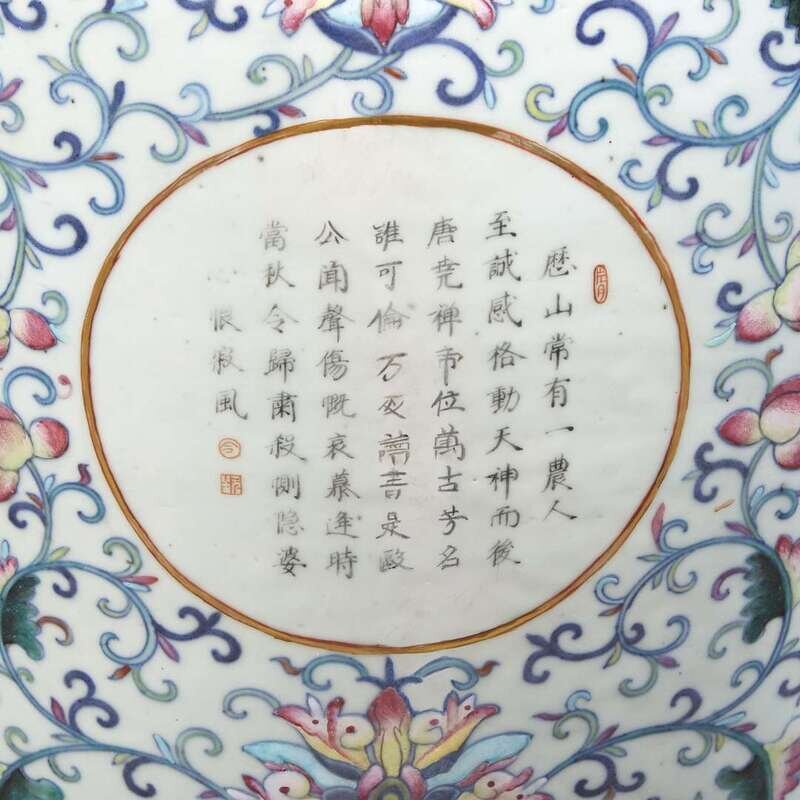 厯山常有一農人
至誠感格動天神而後
唐尭禅帝位萬古芳名
誰可倫万書是歐
公聞聲傷嘅哀慕逢時
當秋令歸肅殺惻隐婆
心恨寂風